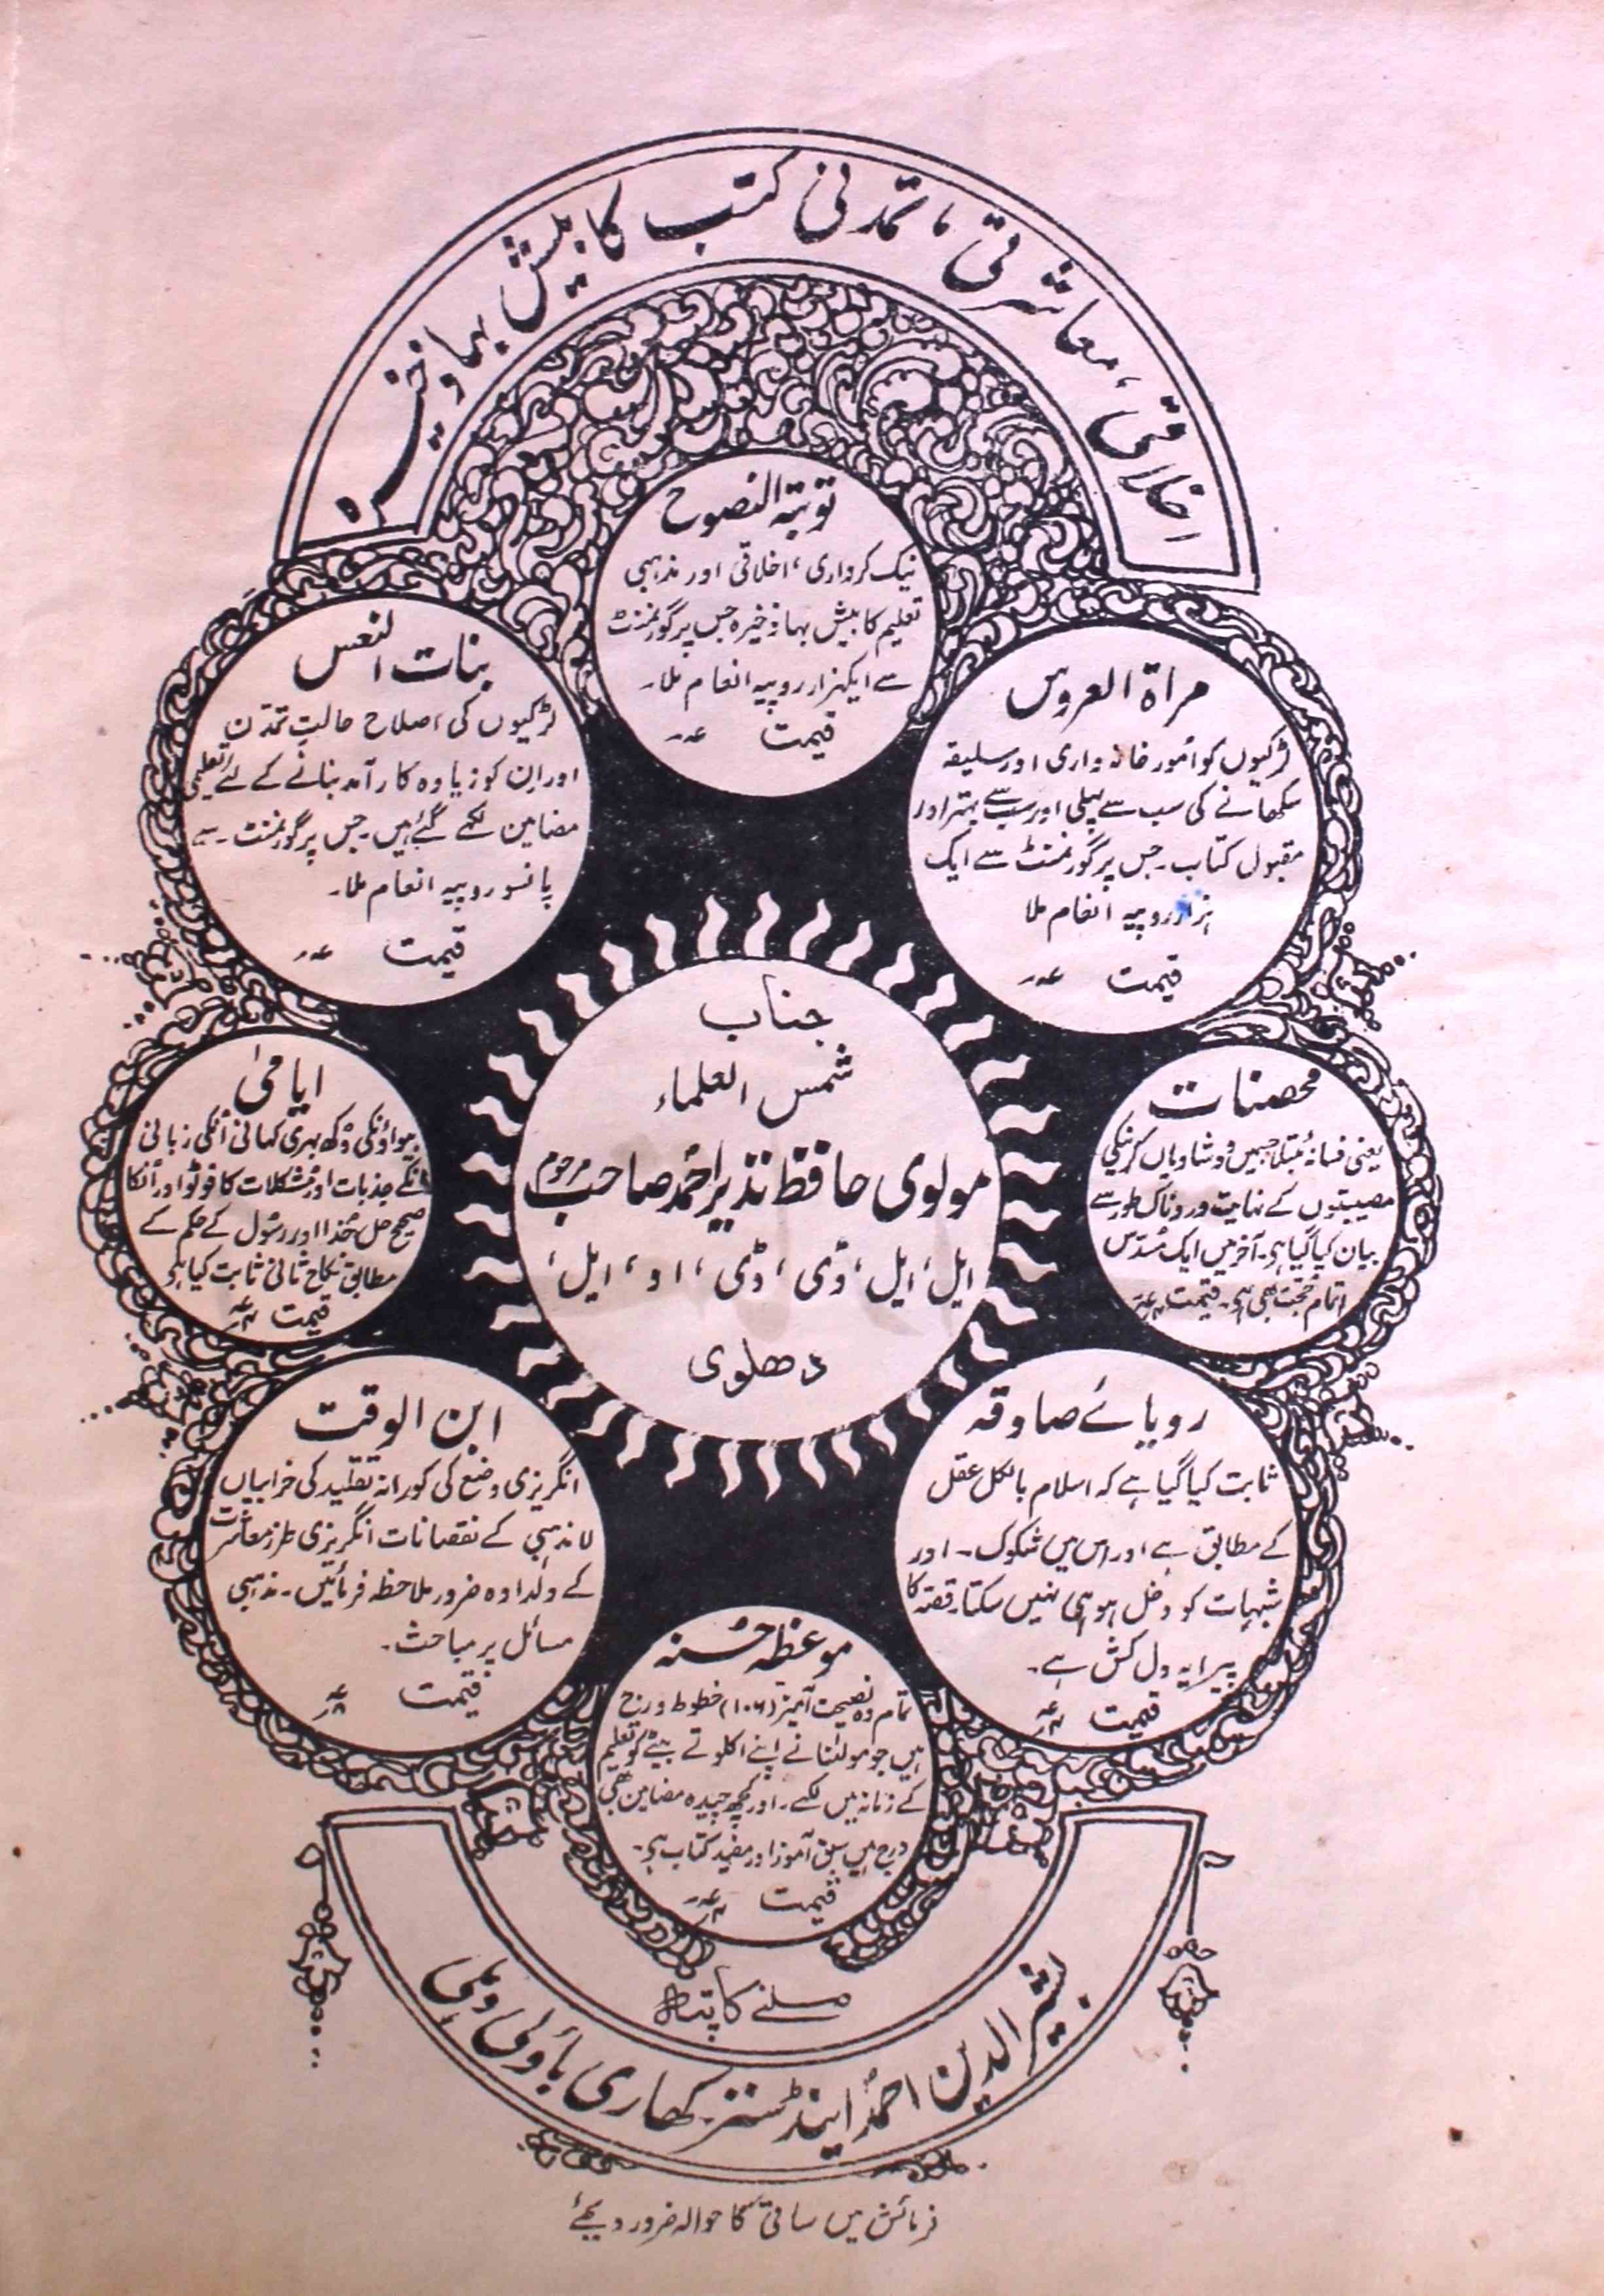 اخلاقی، معاشرتی، تمدنی کتب کا بیش بہا ذخیرہ
توبتہ النصوح
نیک کرداری، اخلاقی اور مذہبی
تعلیم کا بیش بہا ذخیرہ جس پر گورنمنٹ
سے ایکہزار روپیہ انعام ملا۔
قیمت
مراۃ العروس
لڑکیوں کو اُمور خانہ داری اور سلیقہ
سکھانے کی سب سے پہلی اور سب سے بہتر اور
مقبول کتاب۔ جس پر گورنمنٹ سے ایک
ہزار روپیہ انعام ملا
قیمت
بنات النعش
لڑکیوں کی اصلاح حالتِ تمدّن
اور اِن کو زیادہ کار آمد بنانے کے لئے تعلیمی
مضامین لکھے گئے ہیں۔ جس پر گورنمنٹ سے
پانسو روپیہ انعام ملا۔
قیمت
محصنات
یعنی فسانۂ مبتلا جسمیں دو شادیاں کرنیکی
مصیبتوں کے نہایت دردناک طور سے
بیان کیا گیا ہے۔ آخر میں ایک مُسدّس
اتمام حُجت بھی ہے۔ قیمت
جناب
شمس العلماء
مولوی حافظ نذیر احمد صاحب مرحوم
ایل، ایل، ڈی، ڈی، او، ایل،
دھلوی
ایامیٰ
بیواؤنکی دُکھ بھری کہانی اُنکی زبانی
اُنکے جذبات اور مُشکلات کا فوٹو اور اُنکا
صحیح حل خُدا اور رسُول کے حکم کے
مطابق نکاح ثانی ثابت کیا ہے
قیمت
رویائے صادقہ
ثابت کیا گیا ہے کہ اسلام بالکل عقل
کے مطابق ہے اور اس میں شکوک۔ اور
شبہات کو دخل ہو ہی نہیں سکتا۔ قصّہ کا
پیرایہ دل کش ہے۔
قیمت
ابن الوقت
انگریزی وضع کی کورانہ تقلید کی خرابیاں
لا مذہبی کے نقصانات انگریزی طرز معاشرت
کے دلدادہ ضرور ملاحظہ فرمائیں۔ مذہبی
مسائل پر مباحث۔
قیمت
موعظہ حسنہ
تمام وہ نصیحت آمیز (۱۰۶) خطوط درج
ہیں جو مولٰنا نے اپنے اکلوتے بیٹے کو تعلیم
کے زمانہ میں لکھے۔ اور کچھ چیدہ مضامین بھی
درج ہیں سبق آموز اور مفید کتاب ہے۔
قیمت
ملنے کا پتہ
بشیرالدین احمد اینڈ سنز کھاری باؤلی دہلی
فرمائش میں ساقی کا حوالہ ضرور دیجئے